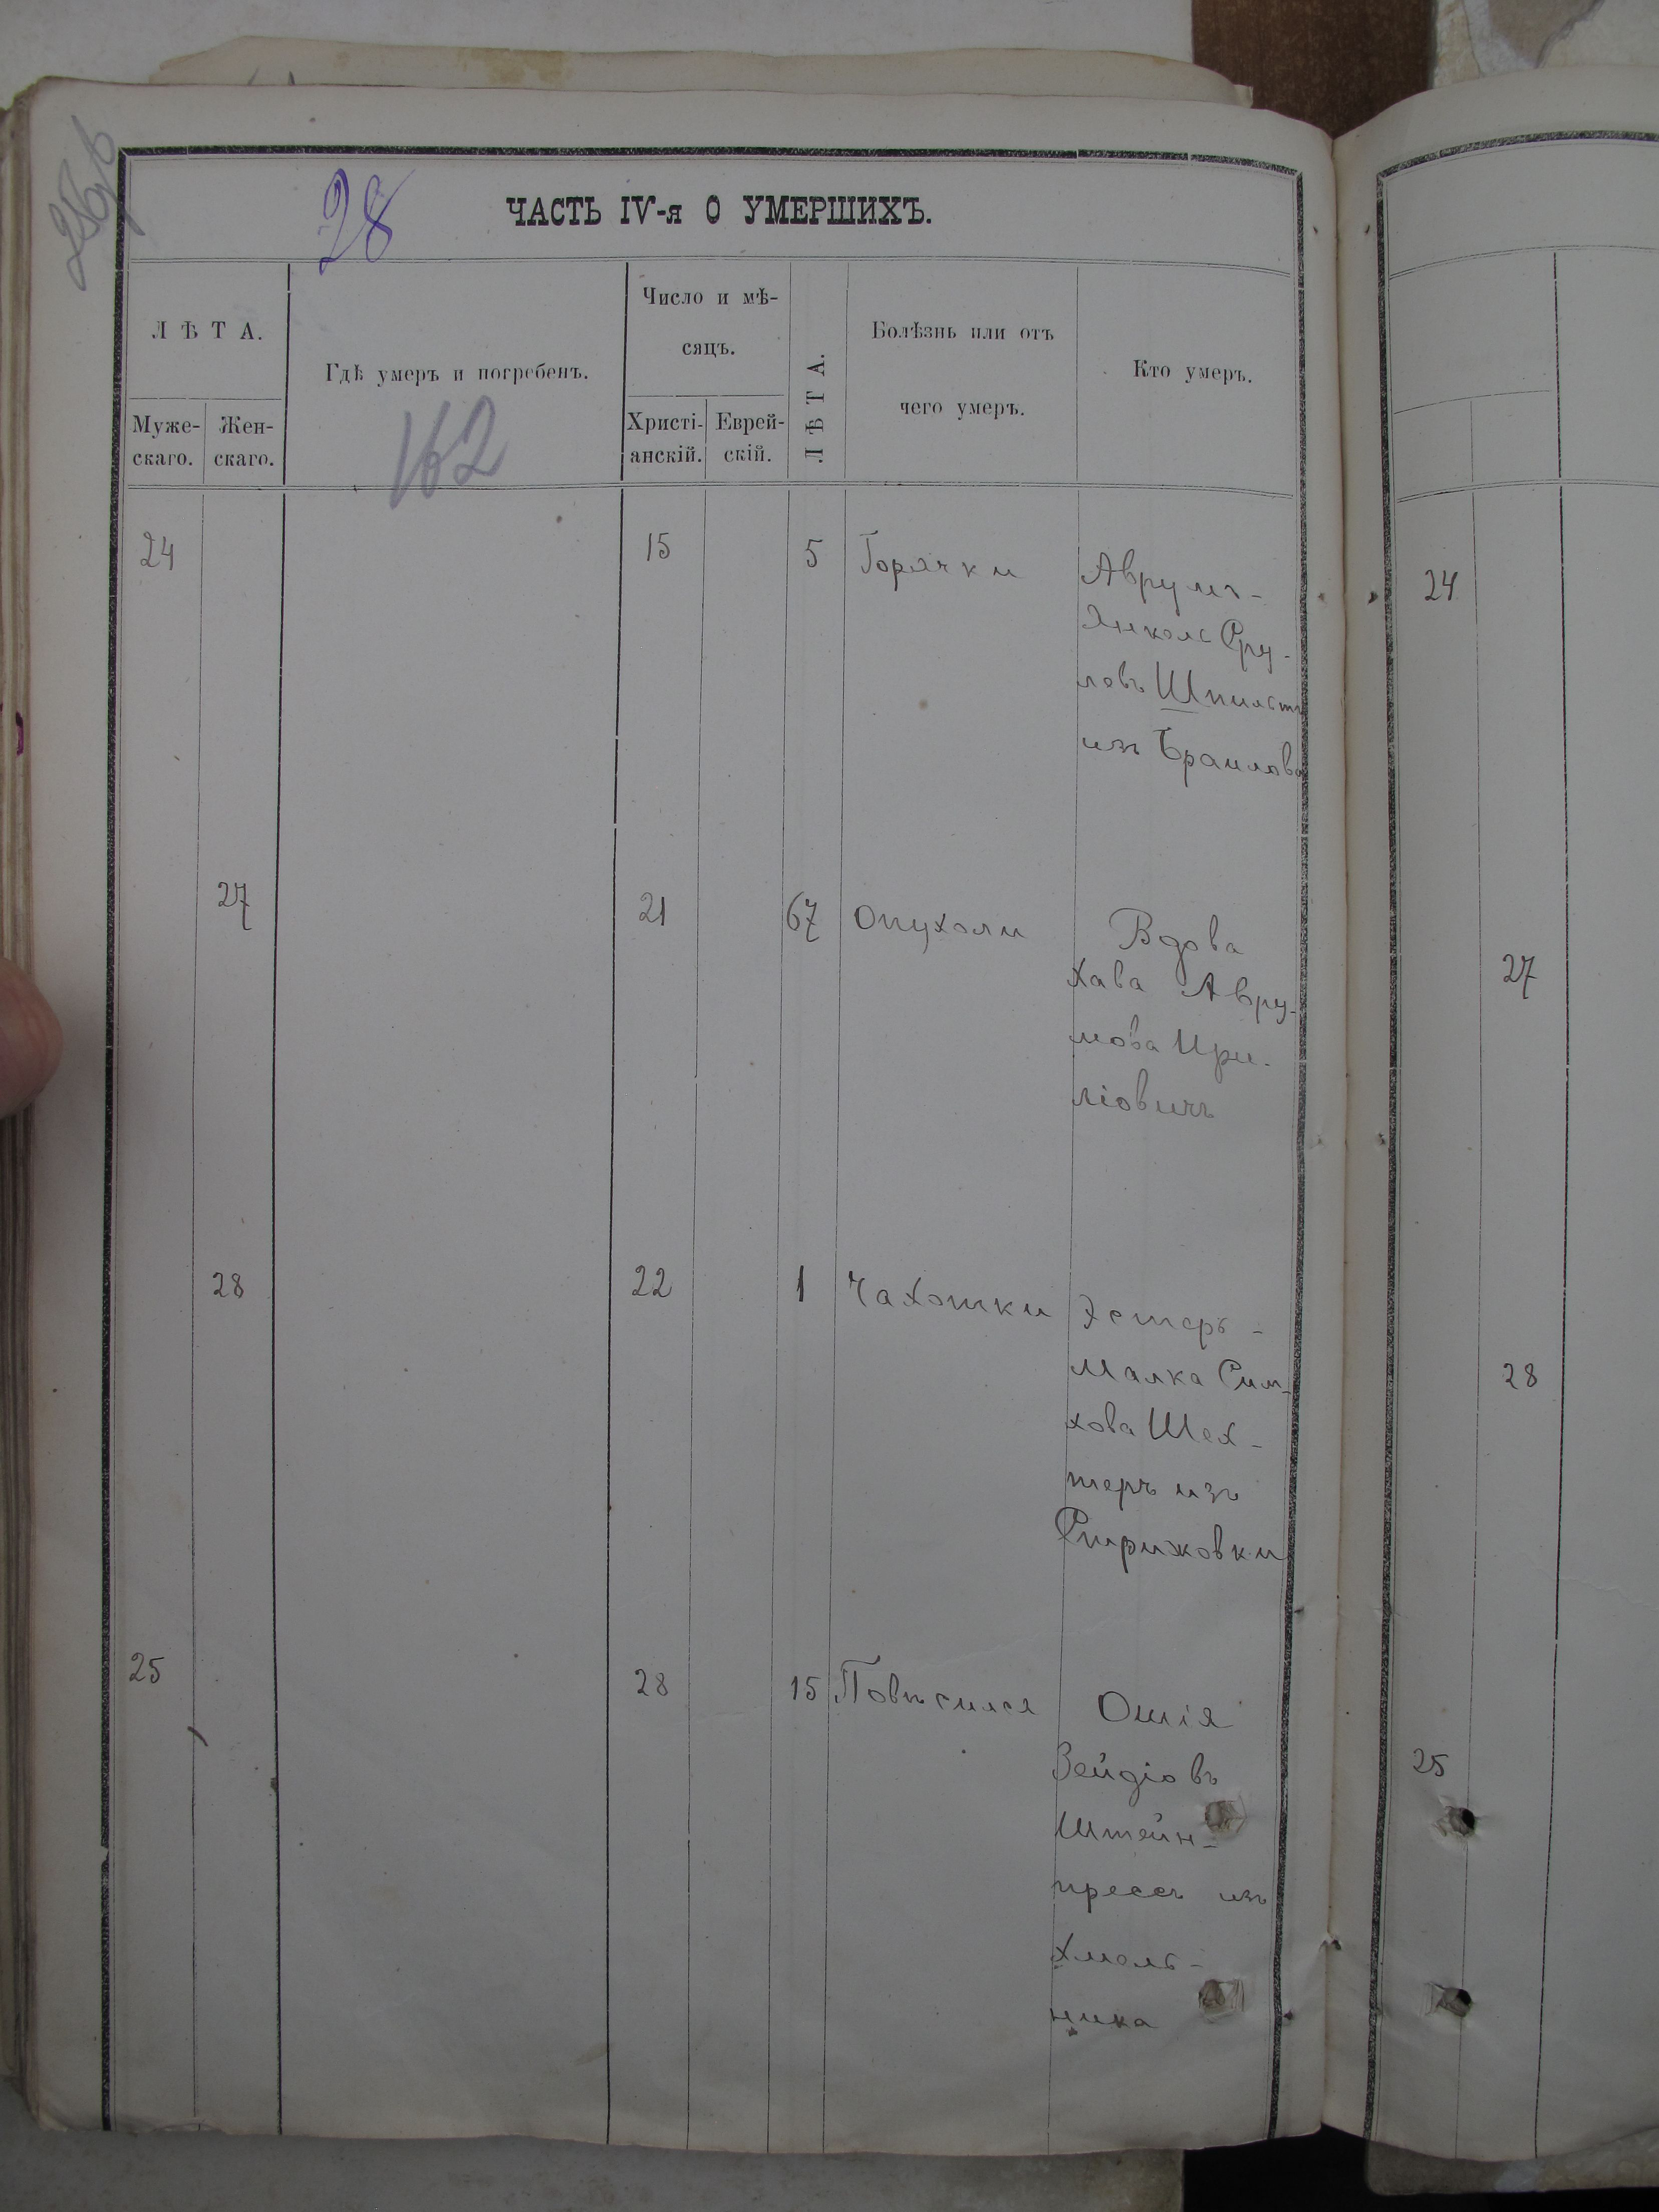 28
ЧАСТЬ IV-я О УМЕРШИХЪ.
ЛѢТА.
Муже-
скаго.
Жен-
скаго.
Гдѣ умеръ и погребенъ.
162
Число и мѣ-
сяцъ.
Христі-
анскій.
Еврей-
скій.
ЛѢТА.
Болѣзнь или отъ
чего умеръ.
Кто умеръ.
24 15 5 Горячки Аврумъ-
Янкель Сру-
левъ
изъ Браилова
27 21 67 Опухоли Вдова
Хава Авру-
мова
ліовичъ
28 22 1 Чахотки Эстеръ-
Малка Сим-
хова Шех-
теръ изъ
Стрижовки
25 28 15 Повѣсился Ошія
Зейдіовъ
Штейн-
прессъ изъ
Хмель-
ника
24
27
28
25